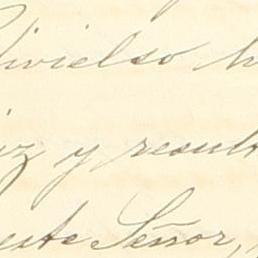 Vivielso h
iz y result
este Señor,